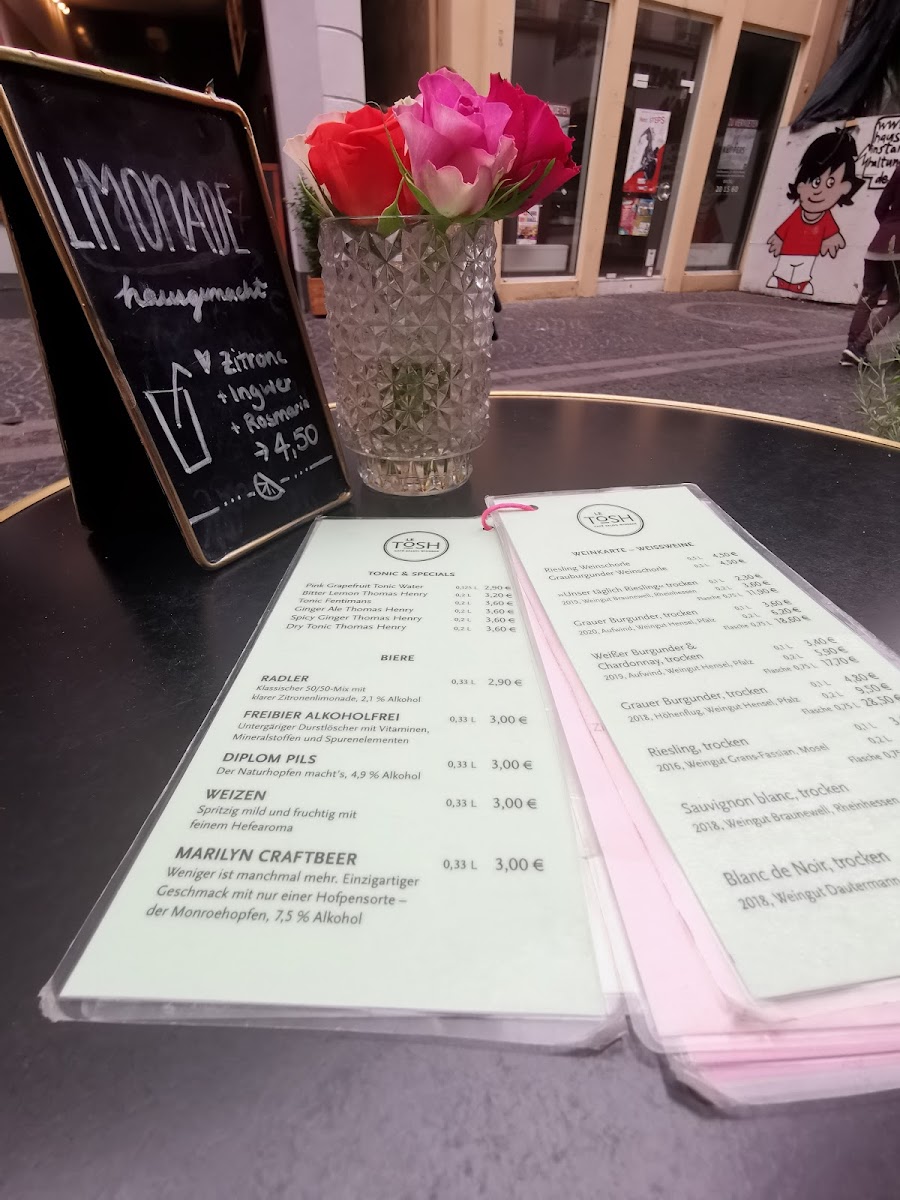 LIMONADE
hausgemacht
Zitrone
+ Ingwer
+ Rosmarin
→ 4,50
LE
TOSH
TONIC & SPECIALS
Pink Grapefruit Tonic Water 0,125 L 2,90 €
Bitter Lemon Thomas Henry 0,2 L 3,20 €
Tonic Fentimans 0,2 L 3,60 €
Ginger Ale Thomas Henry 0,2 L 3,60 €
Spicy Ginger Thomas Henry 0,2 L 3,60 €
Dry Tonic Thomas Henry 0,2 L 3,60 €
BIERE
RADLER 0,33 L 2,90 €
Klassischer 50/50-Mix mit
klarer Zitronenlimonade, 2,1 % Alkohol
FREIBIER ALKOHOLFREI 0,33 L 3,00 €
Untergäriger Durstlöscher mit Vitaminen,
Mineralstoffen und Spurenelementen
DIPLOM PILS 0,33 L 3,00 €
Der Naturhopfen macht's, 4,9 % Alkohol
WEIZEN 0,33 L 3,00 €
Spritzig mild und fruchtig mit
feinem Hefearoma
MARILYN CRAFTBEER 0,33 L 3,00 €
Weniger ist manchmal mehr. Einzigartiger
Geschmack mit nur einer Hofpensorte –
der Monroehopfen, 7,5 % Alkohol
LE
TOSH
WEINKARTE – WEISSWEINE
Riesling Weinschorle 0,2 L 4,50 €
Grauburgunder Weinschorle 0,2 L 4,50 €
»Unser täglich Riesling« trocken 0,1 L 2,30 €
2019, Weingut Braunewell, Rheinhessen 0,2 L 3,60 €
Flasche 0,75 L 11,90 €
Grauer Burgunder, trocken 0,1 L 3,60 €
2020, Aufwind, Weingut Hensel, Pfalz 0,2 L 6,20 €
Flasche 0,75 L 18,60 €
Weißer Burgunder &
Chardonnay, trocken 0,1 L 3,40 €
2019, Aufwind, Weingut Hensel, Pfalz 0,2 L 5,90 €
Flasche 0,75 L 17,70 €
Grauer Burgunder, trocken 0,1 L 4,80 €
2018, Höhenflug, Weingut Hensel, Pfalz 0,2 L 9,50 €
Flasche 0,75 L 28,50 €
Riesling, trocken 0,1 L 3
2016, Weingut Grans-Fassian, Mosel 0,2 L
Flasche 0,75
Sauvignon blanc, trocken
2018, Weingut Braunewell, Rheinhessen
Blanc de Noir, trocken
2018, Weingut Dautermann